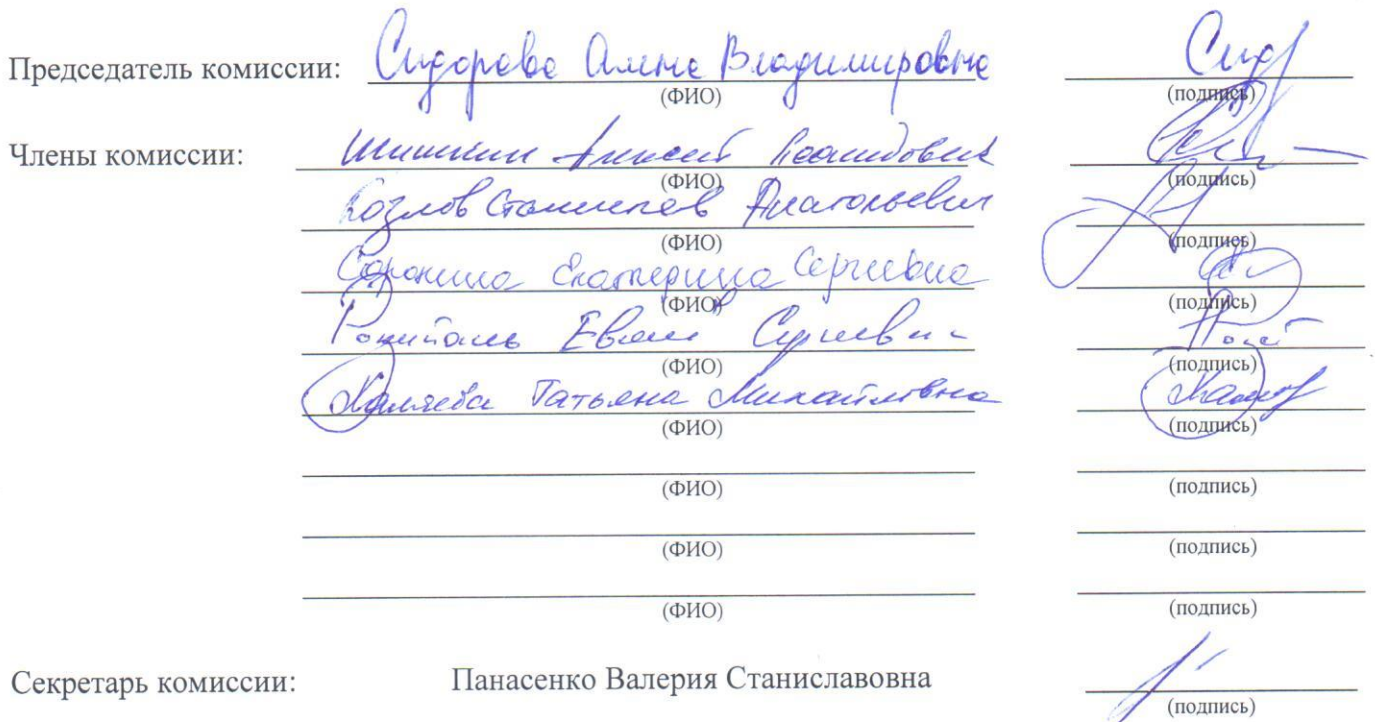 Председатель комиссии: Сидорова Алена Владимировна
(ФИО) (подпись)
Члены комиссии: Шишкин Алексей
(ФИО) (подпись)
Козлов Станислав Анатольевич
(ФИО) (подпись)
Сорокина Екатерина Сергеевна
(ФИО) (подпись)
(ФИО) (подпись)
Татьяна Михайловна
(ФИО) (подпись)
(ФИО) (подпись)
(ФИО) (подпись)
(ФИО) (подпись)
Секретарь комиссии: Панасенко Валерия Станиславовна
(подпись)